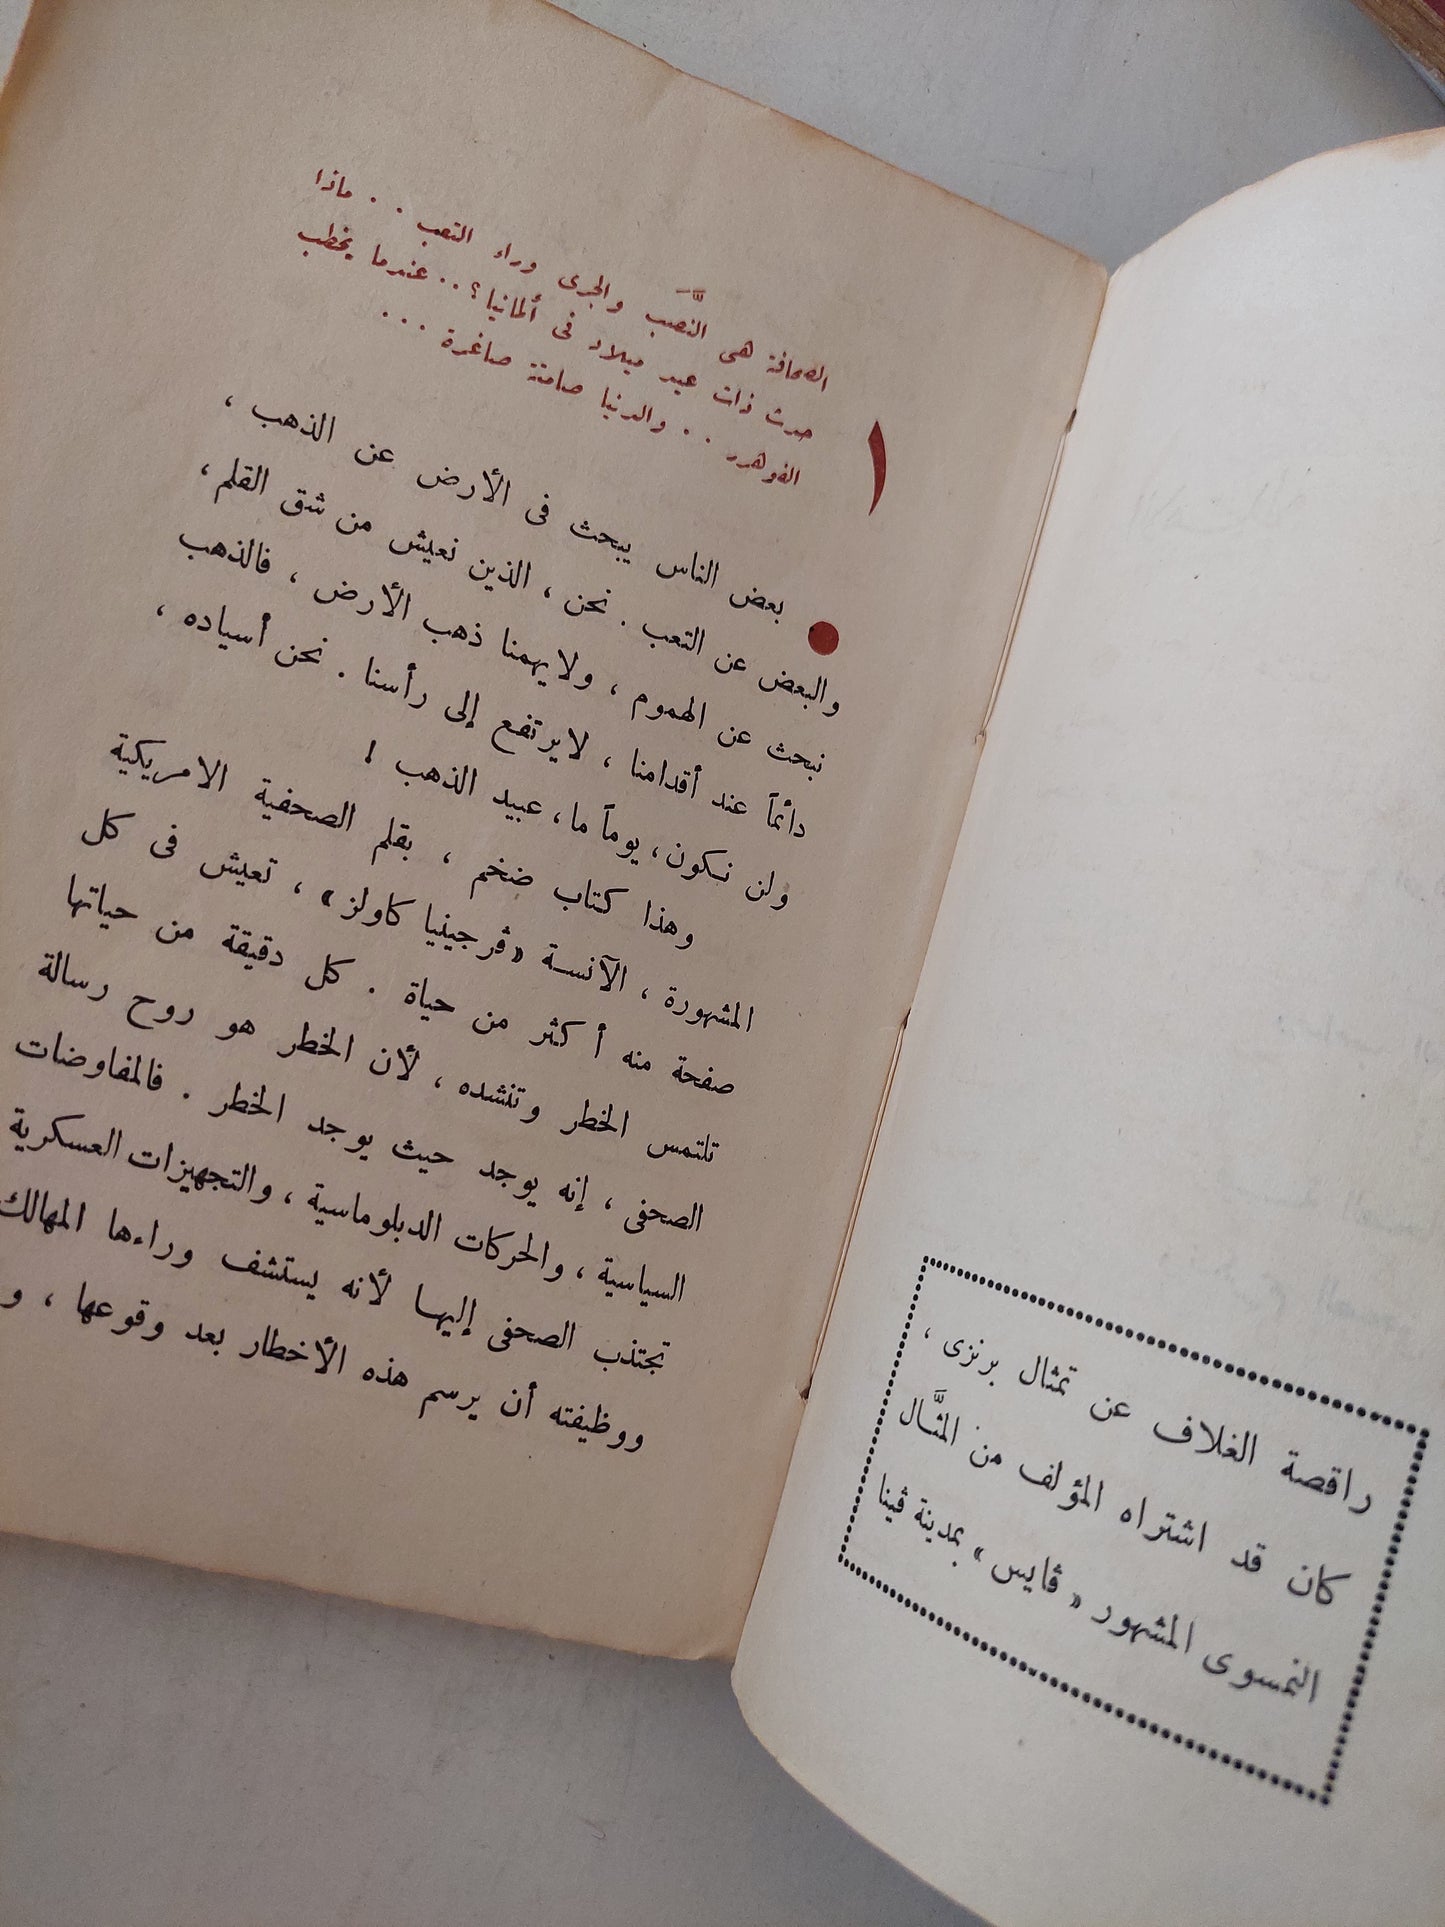 راقصة الغلاف عن تمثال برنزى ،
كان قد اشتراه المؤلف من المثَّال
النمسوى المشهور « ڤايس » بمدينة ڤينا
١
الصحافة هى التعَب والجرى وراء التعب . . ماذا
حدث ذات عيد ميلاد فى ألمانيا ؟ . . عندما يخطب
الفوهرر . . والدنيا صامتة صاغرة . . .
بعض الناس يبحث فى الأرض عن الذهب ،
والبعض عن التعب . نحن ، الذين نعيش من شق القلم ،
نبحث عن الهموم ، ولا يهمنا ذهب الأرض ، فالذهب
دائماً عند أقدامنا ، لا يرتفع إلى رأسنا . نحن أسياده ،
ولن نكون ، يوماً ما ، عبيد الذهب !
وهذا كتاب ضخم ، بقلم الصحفية الامريكية
المشهورة ، الآنسة « ڤرجينيا كاولز » ، تعيش فى كل
صفحة منه أكثر من حياة . كل دقيقة من حياتها
تلتمس الخطر وتنشده ، لأن الخطر هو روح رسالة
الصحفى ، إنه يوجد حيث يوجد الخطر . فالمفاوضات
السياسية ، والحركات الدبلوماسية ، والتجهيزات العسكرية
تجتذب الصحفى إليها لأنه يستشف وراءها المهالك
ووظيفته أن يرسم هذه الأخطار بعد وقوعها ، و